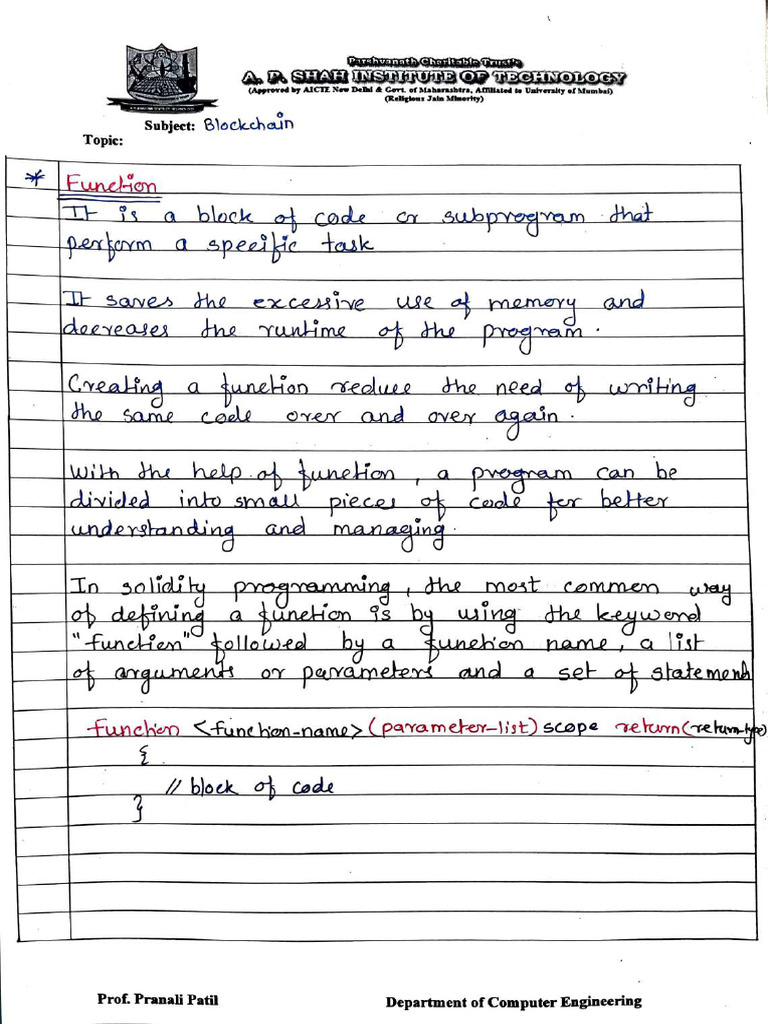 Parshvanath Charitable Trust's
A. P. SHAH INSTITUTE OF TECHNOLOGY
(Approved by AICTE New Delhi & Govt. of Maharashtra, Affiliated to University of Mumbai)
(Religious Jain Minority)
Subject: Blockchain
Topic:
* Function
It is a block of code or subprogram that
perform a specific task
It saves the excessive use of memory and
decreases the runtime of the program.
Creating a function reduce the need of writing
the same code over and over again.
With the help of function, a program can be
divided into small pieces of code for better
understanding and managing.
In solidity programming, the most common way
of defining a function is by using the keyword
"function" followed by a function name, a list
of arguments or parameters and a set of statements
function <function-name> (parameter-list) scope return(return-type)
{
// block of code
}
Prof. Pranali Patil
Department of Computer Engineering